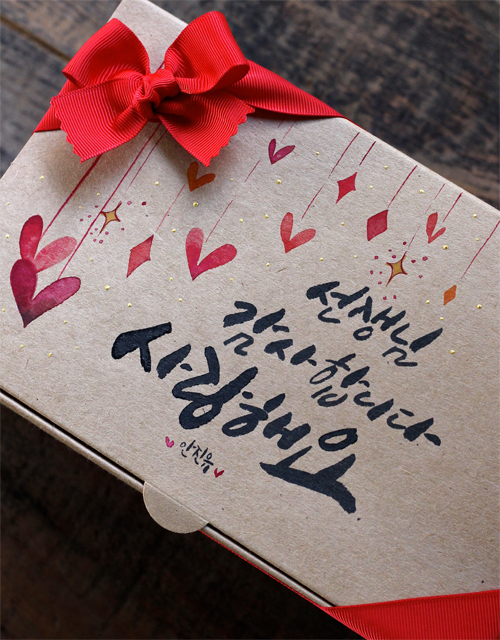 선생님
감사합니다
사랑해요
안진유